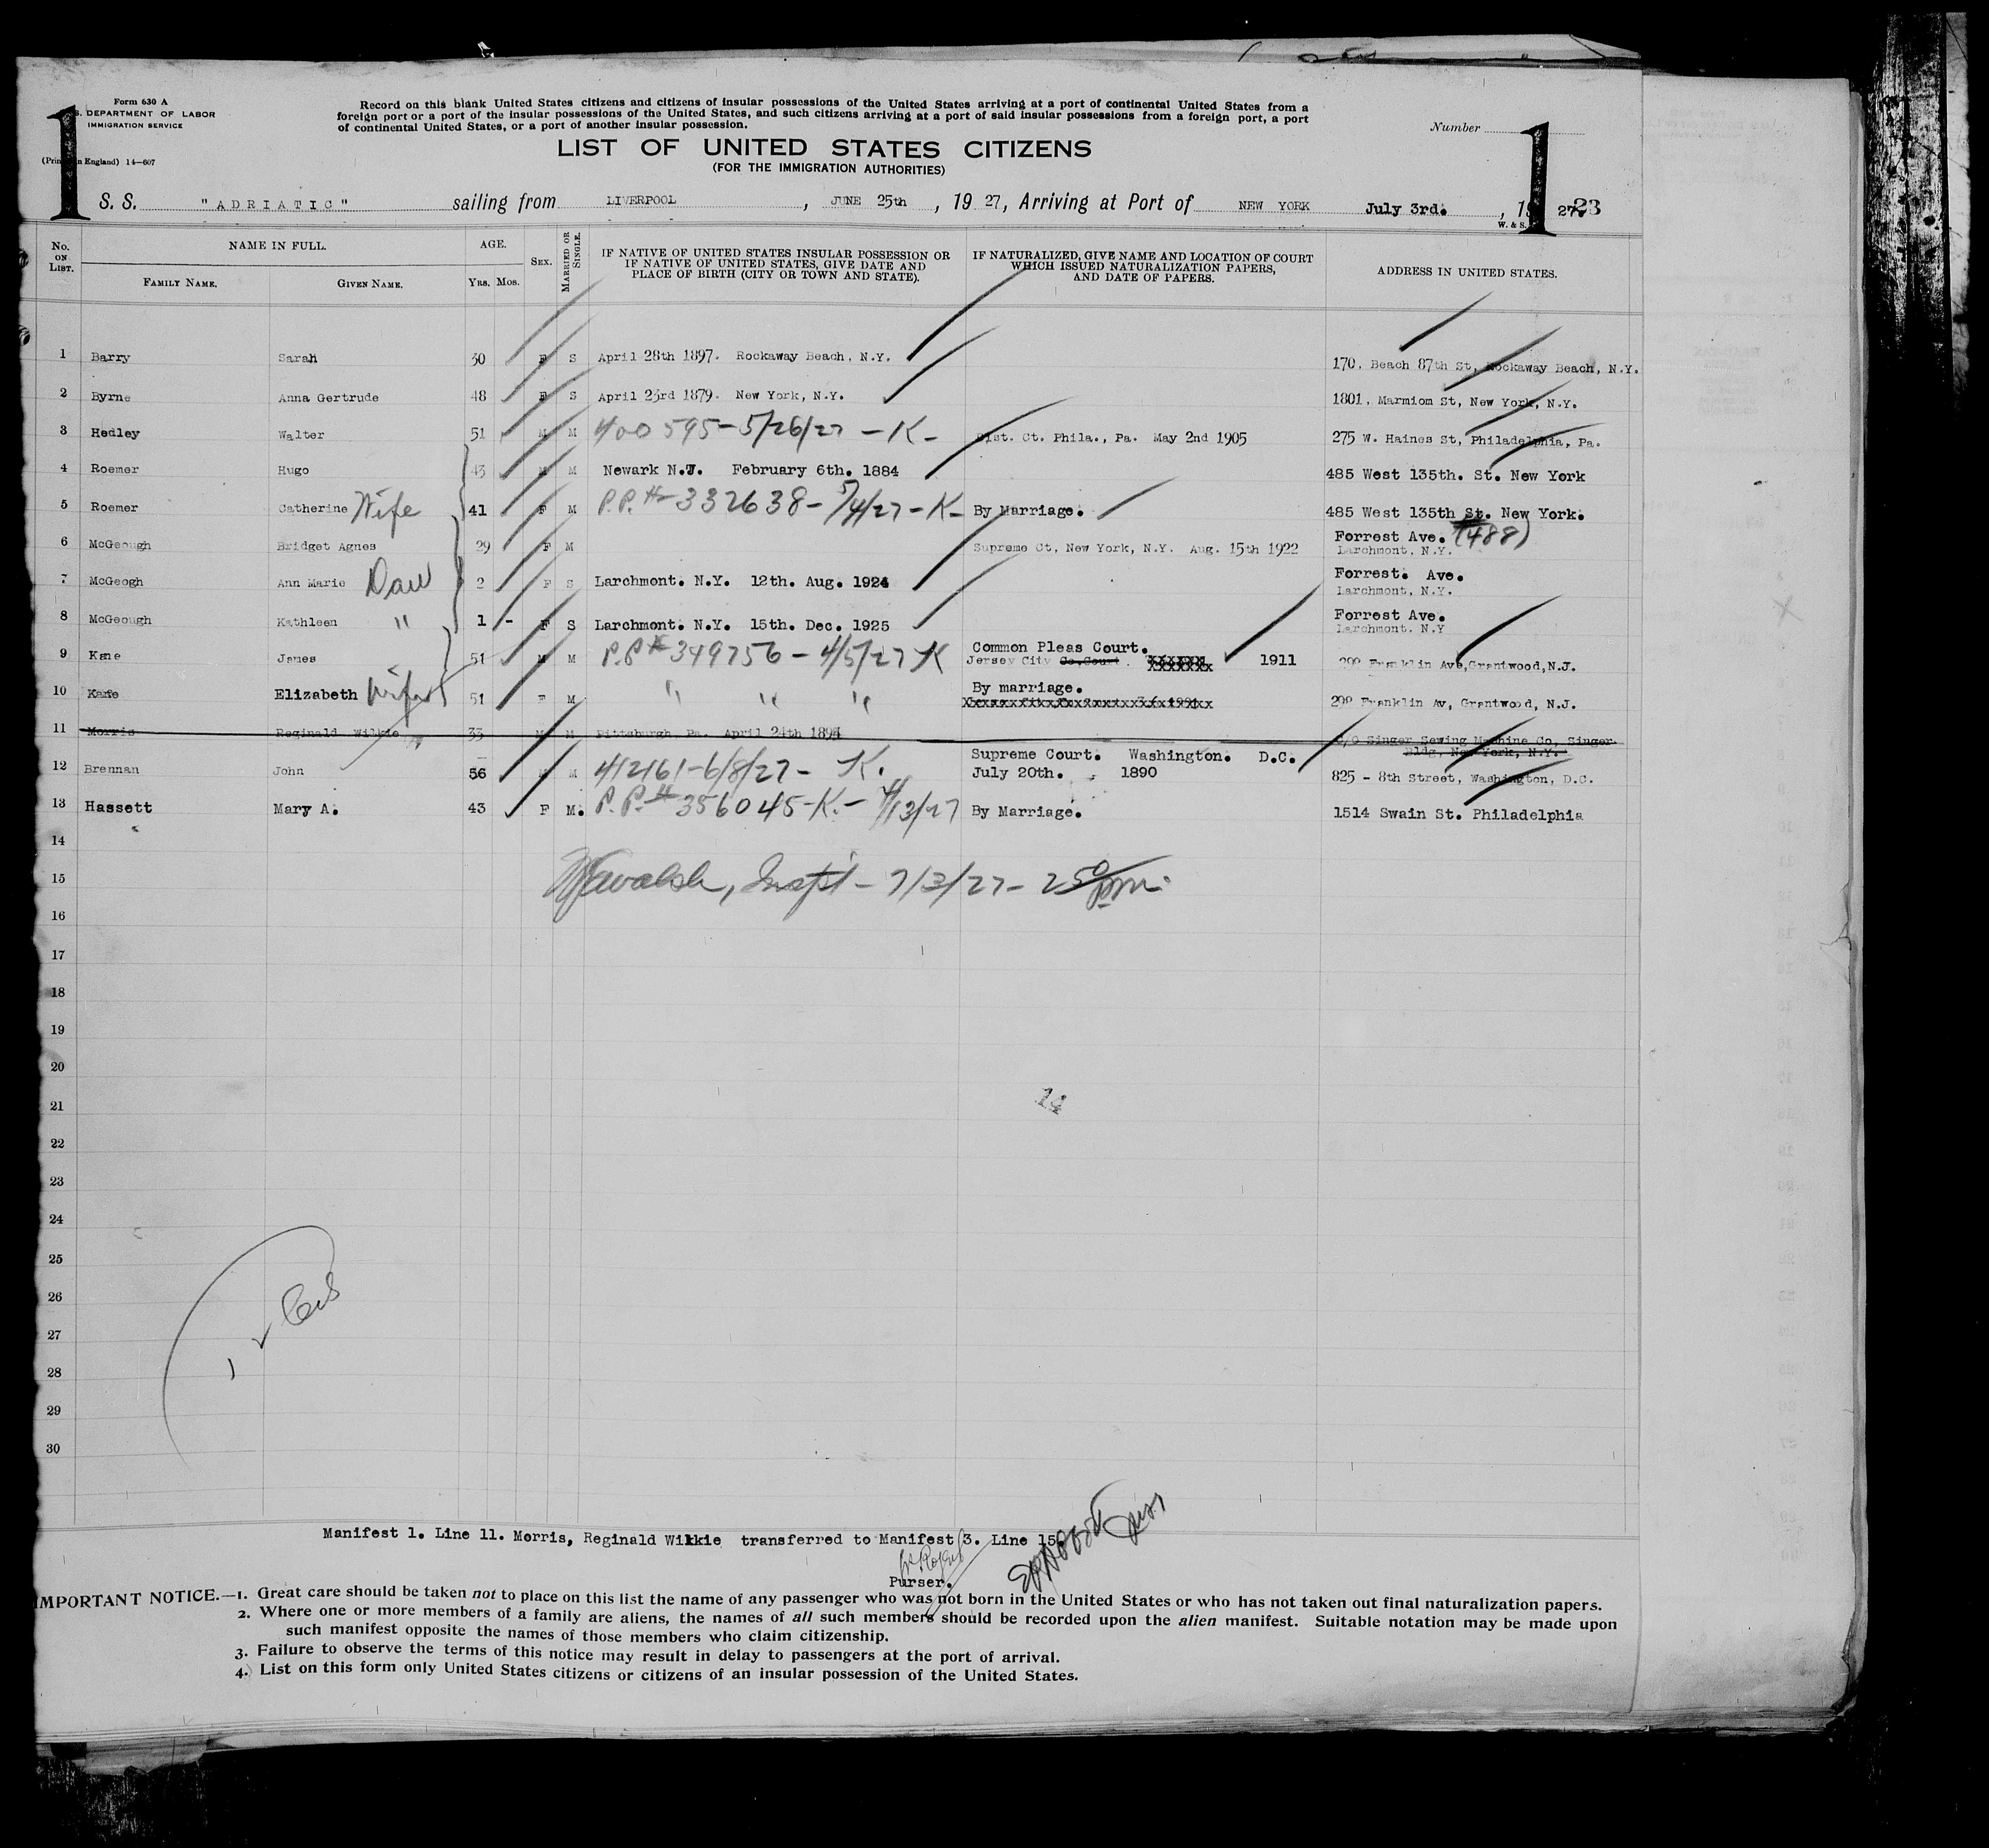 Form 630 A
DEPARTMENT OF LABOR
IMMIGRATION SERVICE
England) 14—607
1
Record on this blank United States citizens and citizens of insular possessions of the United States arriving at a port of continental United States from a
foreign port or a port of the insular possessions of the United States, and such citizens arriving at a port of said insular possessions from a foreign port, a port
of continental United States, or a port of another insular possession.
Number
1
LIST OF UNITED STATES CITIZENS
(FOR THE IMMIGRATION AUTHORITIES)
S. S. "ADRIATIC" sailing from LIVERPOOL, JUNE 25th, 19 27, Arriving at Port of NEW YORK July 3rd. , 1 27. 23
W. & S.
No. ON LIST. NAME IN FULL. AGE. SEX. MARRIED OR SINGLE. IF NATIVE OF UNITED STATES INSULAR POSSESSION OR IF NATIVE OF UNITED STATES, GIVE DATE AND PLACE OF BIRTH (CITY OR TOWN AND STATE). IF NATURALIZED, GIVE NAME AND LOCATION OF COURT WHICH ISSUED NATURALIZATION PAPERS, AND DATE OF PAPERS. ADDRESS IN UNITED STATES.
FAMILY NAME. GIVEN NAME. YRS. MOS.
1 Barry Sarah 30 F S April 28th 1897. Rockaway Beach, N.Y. 170, Beach 87th St, Rockaway Beach, N.Y.
2 Byrne Anna Gertrude 48 F S April 23rd 1879. New York, N.Y. 1801, Marmiom St, New York, N.Y.
3 Hedley Walter 51 M M 400595-5/26/27 - K - Dist. Ct. Phila., Pa. May 2nd 1905 275 W. Haines St, Philadelphia, Pa.
4 Roemer Hugo 43 M M Newark N.J. February 6th. 1884 485 West 135th. St. New York
5 Roemer Catherine Wife 41 F M P.P.#-332638-5/4/27-K- By Marriage. 485 West 135th St. New York.
6 McGeough Bridget Agnes 29 F M Supreme Ct, New York, N.Y. Aug. 15th 1922 Forrest Ave. (488)
Larchmont, N.Y.
7 McGeogh Ann Marie Dau 2 F S Larchmont. N.Y. 12th. Aug. 1924 Forrest. Ave.
Larchmont, N.Y.
8 McGeough Kathleen " 1 - F S Larchmont. N.Y. 15th. Dec. 1925 Forrest Ave.
Larchmont. N.Y
9 Kane James 51 M M P.P.# 349756 - 4/5/27 K Common Pleas Court.
Jersey City Co.Court. XXXXXXX 1911 Franklin Ave, Grantwood, N.J.
10 Kane Elizabeth Wife 51 F M " " " By marriage.
Franklin Av, Grantwood, N.J.
11 Morris Reginald Wilkie 33 M M Pittsburgh, Pa. April 24th 1894 C/O Singer Sewing Machine Co, Singer
Bldg, New York, N.Y.
12 Brennan John 56 M M 412161-6/8/27- K. Supreme Court. Washington. D.C.
July 20th. 1890 825 - 8th Street, Washington, D.C.
13 Hassett Mary A. 43 F M. P.P.# 356045-K.- 4/13/27 By Marriage. 1514 Swain St. Philadelphia
14
15 Walsh, Inspt - 7/3/27- 250 pm.
16
17
18
19
20
21
14
22
23
24
25
26
27
28
29
30
Manifest 1. Line 11. Morris, Reginald Wilkie transferred to Manifest 3. Line 15
Purser.
IMPORTANT NOTICE.—1. Great care should be taken not to place on this list the name of any passenger who was not born in the United States or who has not taken out final naturalization papers.
2. Where one or more members of a family are aliens, the names of all such members should be recorded upon the alien manifest. Suitable notation may be made upon
such manifest opposite the names of those members who claim citizenship.
3. Failure to observe the terms of this notice may result in delay to passengers at the port of arrival.
4. List on this form only United States citizens or citizens of an insular possession of the United States.